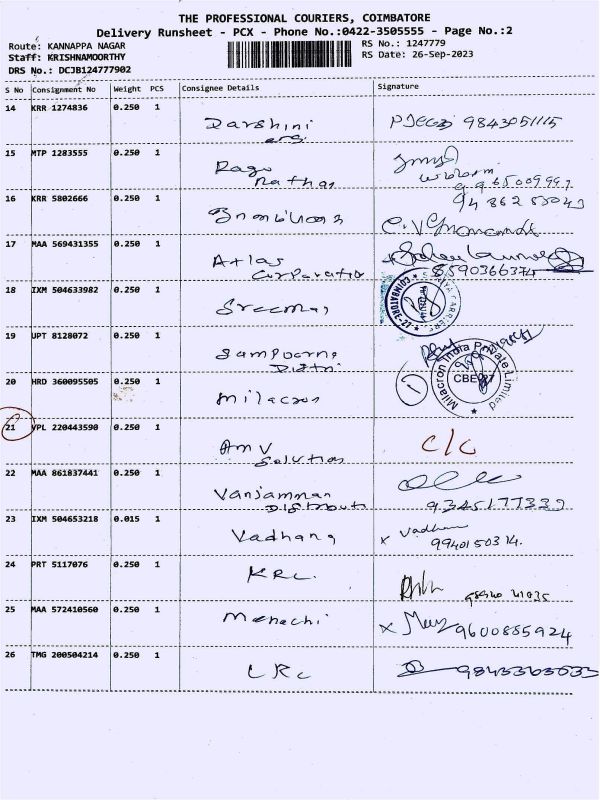 THE PROFESSIONAL COURIERS, COIMBATORE
Delivery Runsheet - PCX - Phone No.:0422-3505555 - Page No.:2
Route: KANNAPPA NAGAR
Staff: KRISHNAMOORTHY
DRS No.: DCJB124777902
RS No.: 1247779
RS Date: 26-Sep-2023
S No Consignment No Weight PCS Consignee Details Signature
14 KRR 1274836 0.250 1 Darshini 9843051115
15 MTP 1283555 0.250 1 Rago
nathas
16 KRR 5802666 0.250 1
17 MAA 569431355 0.250 1 Atlas
Corporatio 8590366374
18 IXM 504633982 0.250 1 Sreemas
COIMBATORE
19 UPT 8128072 0.250 1 Sampoorna
Distri
20 HRD 360095505 0.250 1 Milacron
Milacron India Private Limited
CBE
21 VPL 220443590 0.250 1 AMV
Solution C/C
22 MAA 861837441 0.250 1 Vanjamman
Distributi 9345177339
23 IXM 504653218 0.015 1 Vadhana x Vadhana
9940150314.
24 PRT 5117076 0.250 1 KRC.
25 MAA 572410560 0.250 1 Menachi 9600885924
26 TMG 200504214 0.250 1 LRC